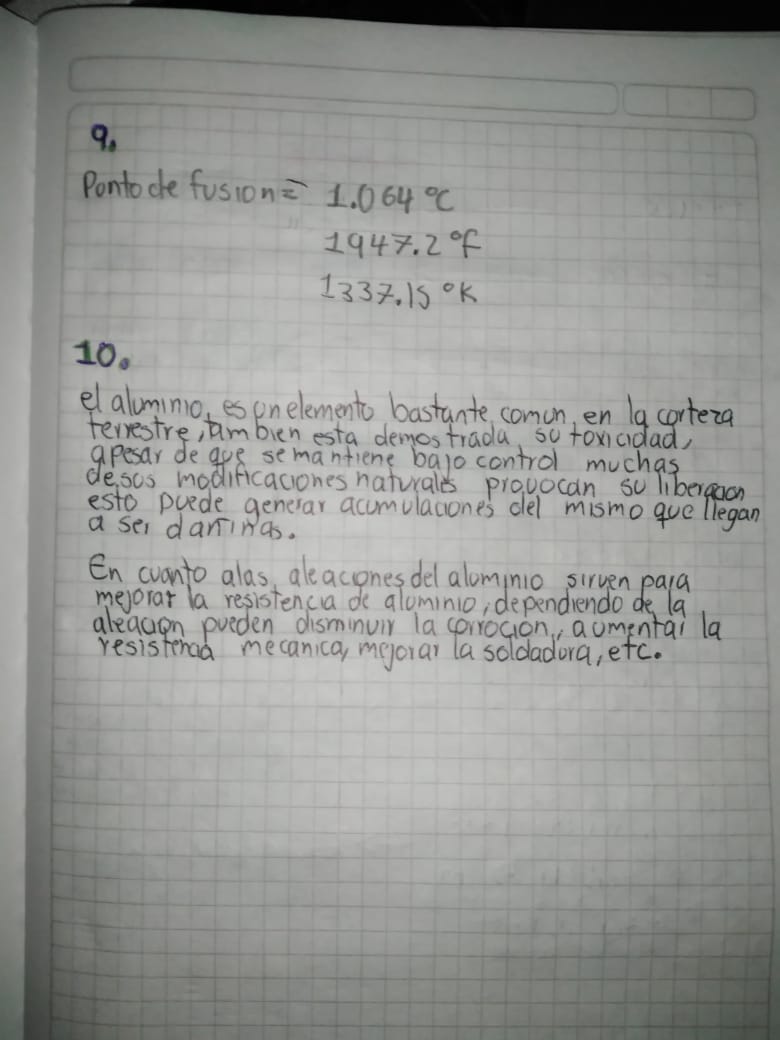 9.
Punto de fusion = 1.064 °C
1947.2 °F
1337.15 °K
10.
el aluminio, es un elemento bastante comun en la corteza
terrestre, tambien esta demostrada su toxicidad,
apesar de que se mantiene bajo control muchas
de sus modificaciones naturales provocan su liberacion
esto puede generar acumulaciones del mismo que llegan
a ser dañinas.
En cuanto alas aleaciones del aluminio sirven para
mejorar la resistencia de aluminio, dependiendo de la
aleacion pueden disminuir la corrocion, aumentar la
resistencia mecanica, mejorar la soldadura, etc.